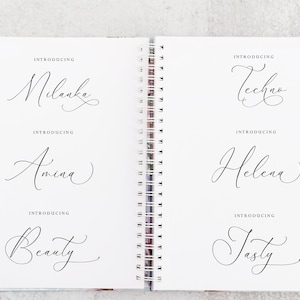 INTRODUCING
Milanka
INTRODUCING
Amina
INTRODUCING
Beauty
INTRODUCING
Techno
INTRODUCING
Helena
INTRODUCING
Tasty